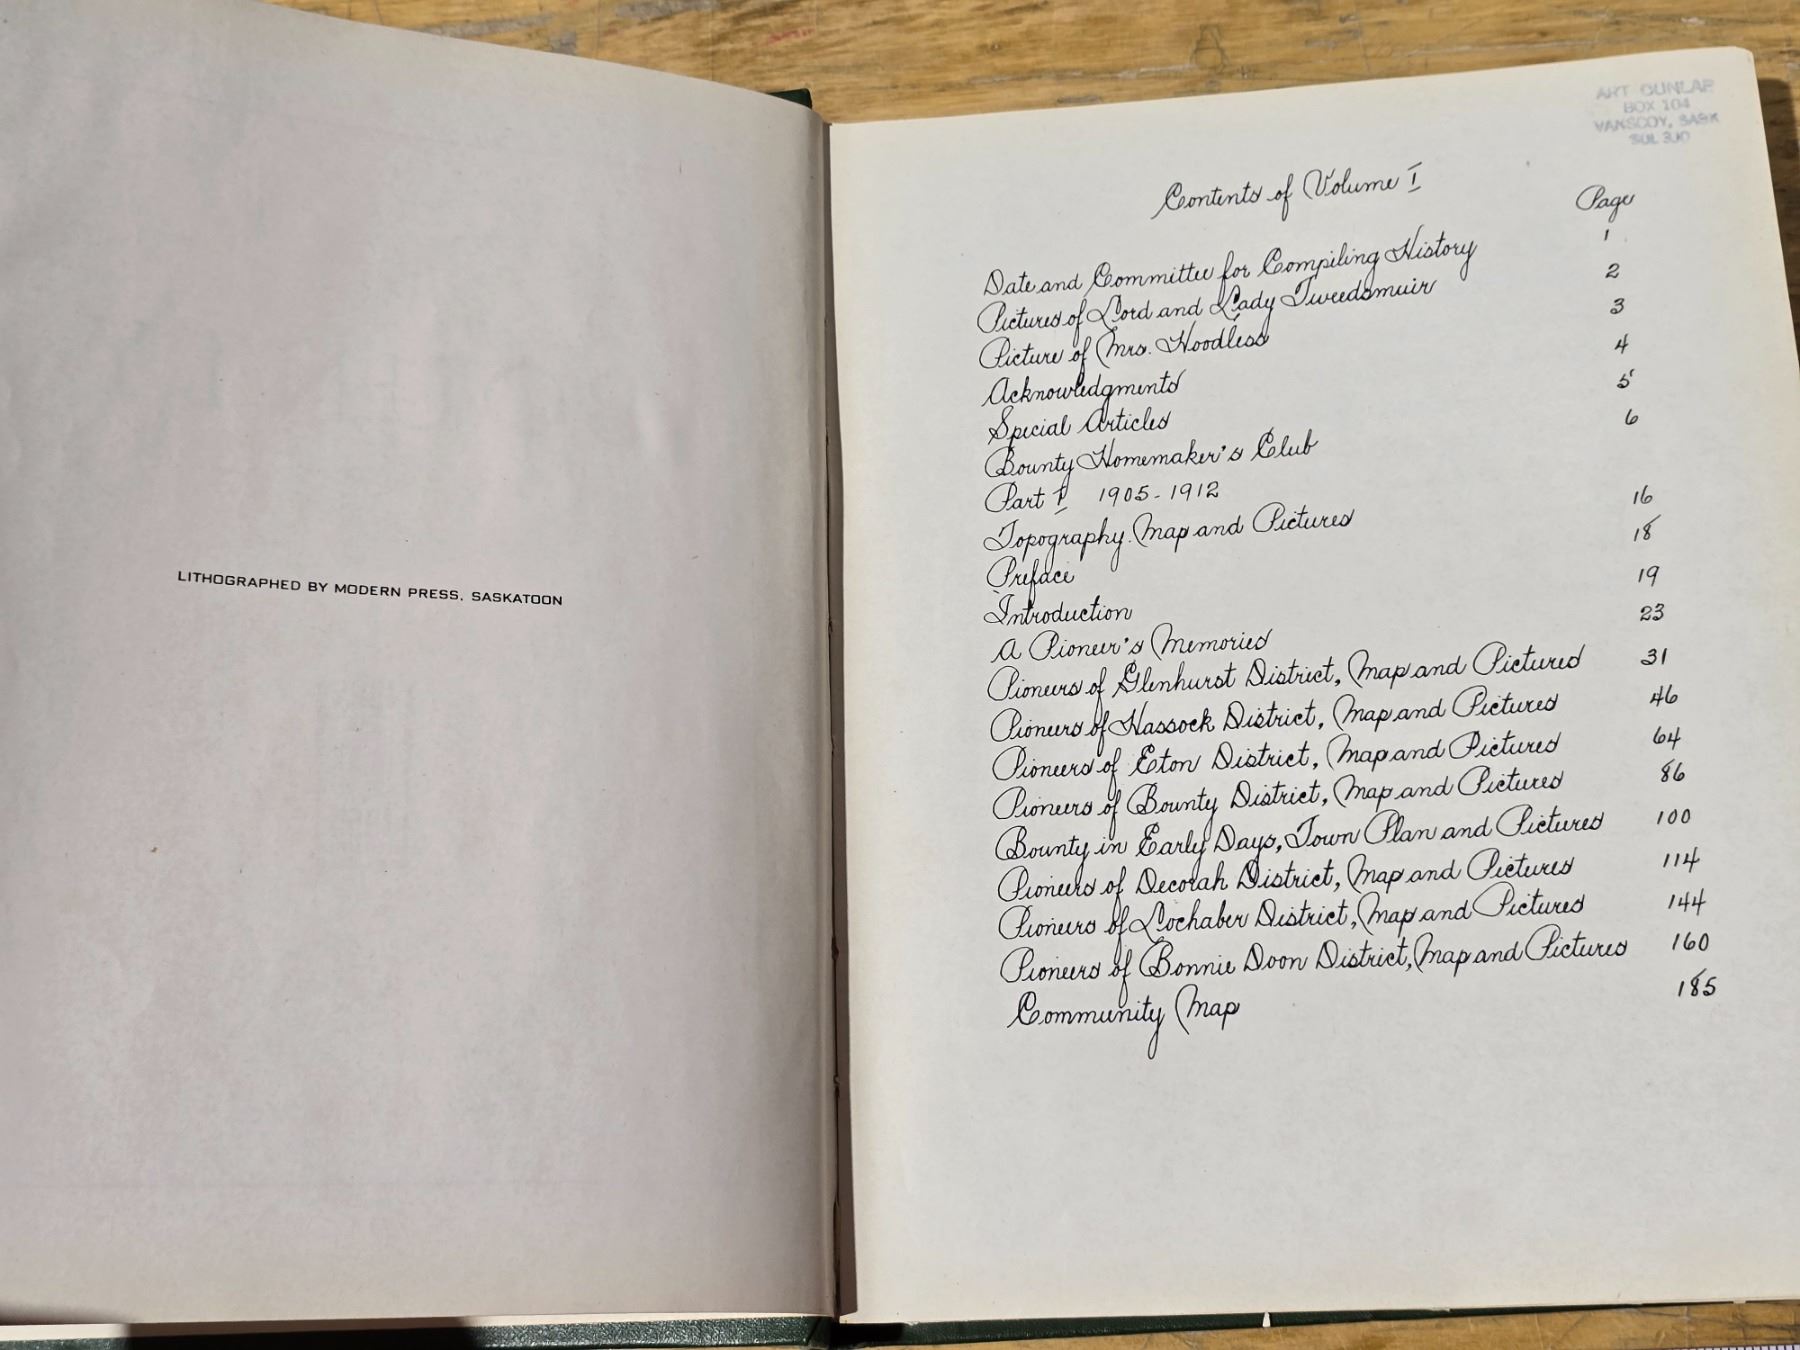 LITHOGRAPHED BY MODERN PRESS, SASKATOON
ART DUNLAP
BOX 104
VANSCOY, SASK
S0L 3J0
Contents of Volume I
Page
Date and Committee for Compiling History 1
Pictures of Lord and Lady Tweedsmuir 2
Picture of Mrs. Hoodless 3
Acknowledgments 4
Special Articles 5
Bounty Homemaker's Club 6
Part I 1905-1912
Topography. Map and Pictures 16
Preface 18
Introduction 19
A Pioneer's Memories 23
Pioneers of Glenhurst District, Map and Pictures 31
Pioneers of Hassock District, Map and Pictures 46
Pioneers of Eton District, Map and Pictures 64
Pioneers of Bounty District, Map and Pictures 86
Bounty in Early Days, Town Plan and Pictures 100
Pioneers of Decorah District, Map and Pictures 114
Pioneers of Lochaber District, Map and Pictures 144
Pioneers of Bonnie Doon District, Map and Pictures 160
Community Map 185